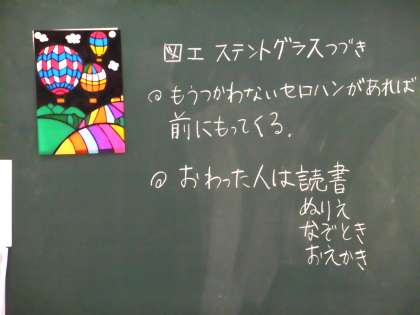 図工 ステントグラスつづき
◎ もうつかわないセロハンがあれば
前にもってくる。
◎ おわった人は読書
ぬりえ
なぞとき
おえかき